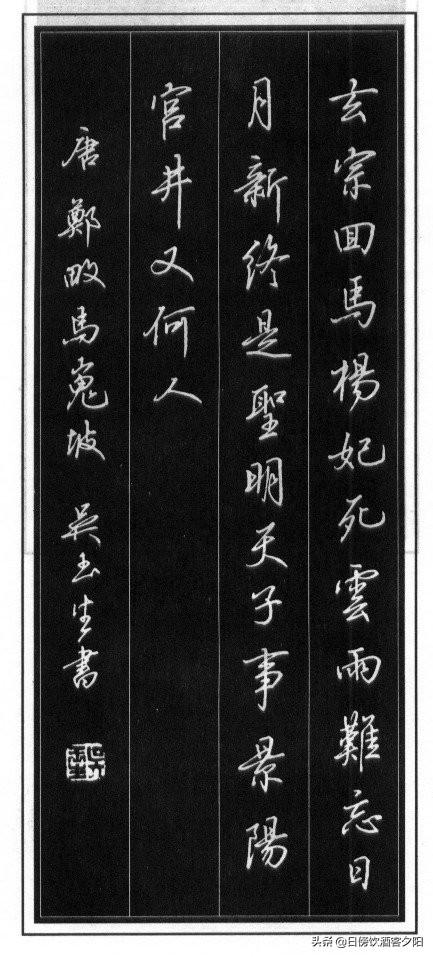 玄宗回馬楊妃死雲雨難忘日
月新終是聖明天子事景陽
宮井又何人
唐鄭畋馬嵬坡 吳玉生書
头条 @日傍饮酒客夕阳